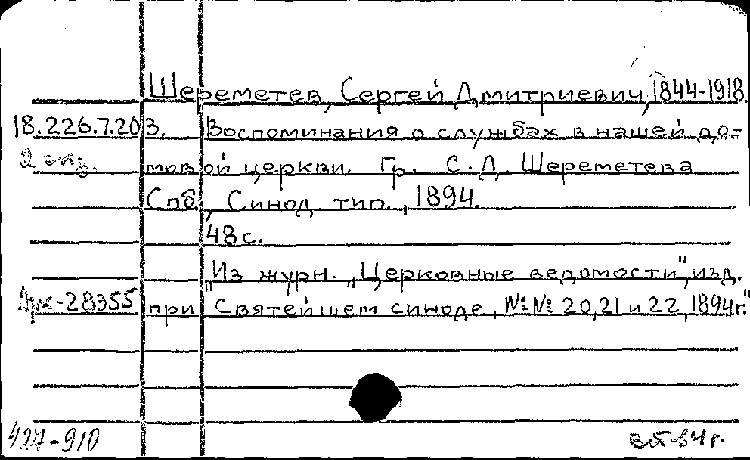 Шереметев, Сергей Дмитриевич, 1844-1918.
18.226.7.203. Воспоминания о службах в нашей до-
2 экз. мовой церкви. Гр. С.Д. Шереметева
Спб., Синод. тип., 1894.
48 с.
"Из журн. „Церковные ведомости", изд.
Арх-28355 при Святейшем синоде, №№ 20,21 и 22, 1894 г."
427-910